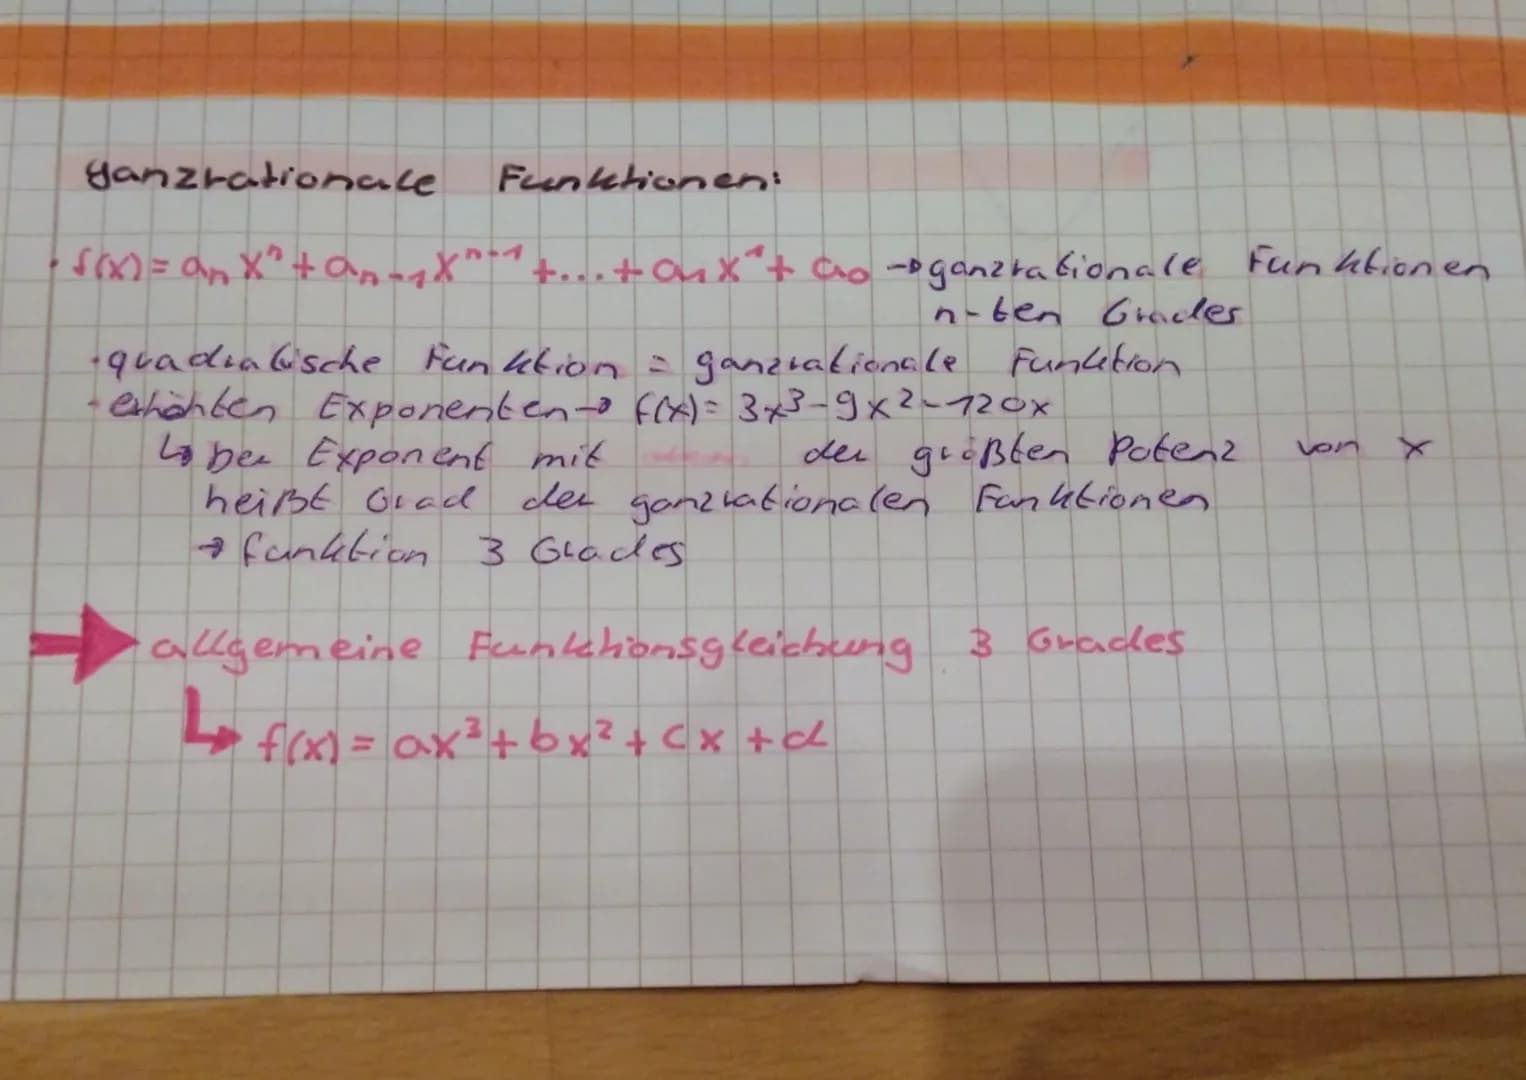 ganzrationale Funktionen:
· f(x) = aₙ xⁿ + aₙ₋₁ xⁿ⁻¹ + ... + a₁ x¹ + a₀ → ganzrationale Funktionen
n-ten Grades
· quadratische Funktion = ganzrationale Funktion
· erhöhten Exponenten → f(x) = 3x³ - 9x² - 120x
↳ Der Exponent mit der größten Potenz von x
heißt Grad der ganzrationalen Funktionen
→ funktion 3 Grades
→ allgemeine Funktionsgleichung 3 Grades
↳ f(x) = ax³ + bx² + cx + d